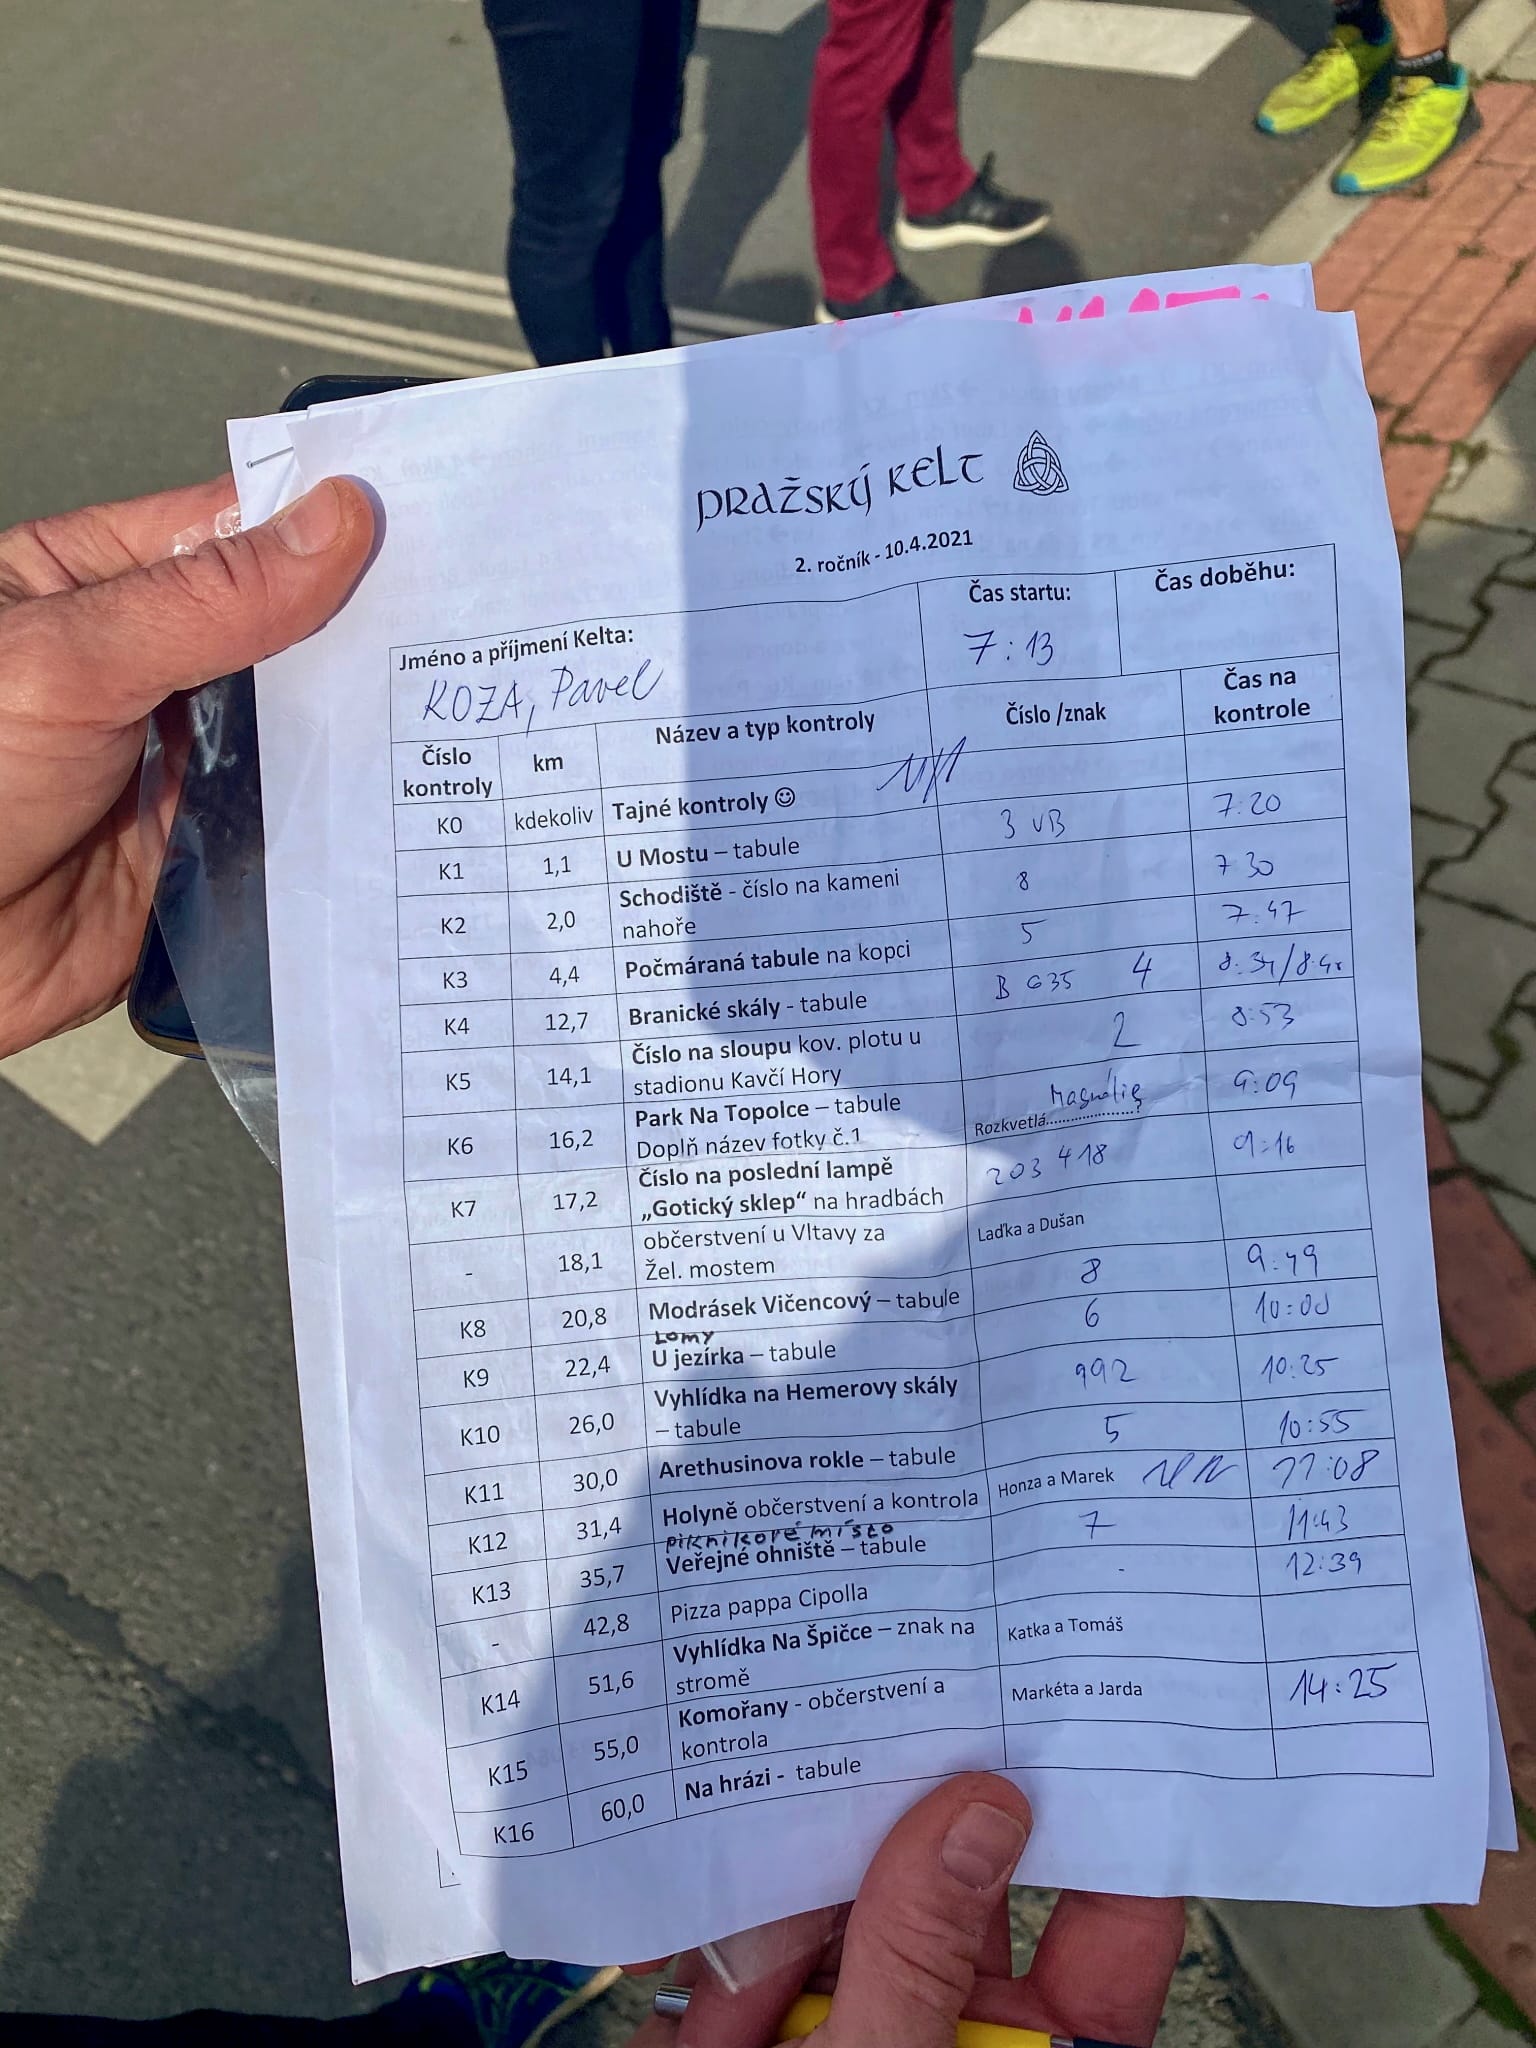 PRAŽSKÝ KELT
2. ročník - 10.4.2021
Jméno a příjmení Kelta: Čas startu: Čas doběhu:
KOZA, Pavel 7:13
Číslo kontroly km Název a typ kontroly Číslo /znak Čas na kontrole
K0 kdekoliv Tajné kontroly ☺
K1 1,1 U Mostu – tabule 3 VB 7:20
K2 2,0 Schodiště - číslo na kameni nahoře 8 7 30
K3 4,4 Počmáraná tabule na kopci 5 7:47
K4 12,7 Branické skály - tabule B 635 4
K5 14,1 Číslo na sloupu kov. plotu u stadionu Kavčí Hory 2 8:53
K6 16,2 Park Na Topolce – tabule Doplň název fotky č.1 Magnólie Rozkvetlá....................? 9:09
K7 17,2 Číslo na poslední lampě „Gotický sklep“ na hradbách 203 418 9:16
- 18,1 občerstvení u Vltavy za Žel. mostem Laďka a Dušan
K8 20,8 Modrásek Vičencový – tabule 8 9:49
K9 22,4 Lomy U jezírka – tabule 6 10:00
K10 26,0 Vyhlídka na Hemerovy skály – tabule 992 10:25
K11 30,0 Arethusinova rokle – tabule 5 10:55
K12 31,4 Holyně občerstvení a kontrola Honza a Marek 11:08
K13 35,7 piknikové místo Veřejné ohniště – tabule 7 11:43
- 42,8 Pizza pappa Cipolla - 12:39
K14 51,6 Vyhlídka Na Špičce – znak na stromě Katka a Tomáš
K15 55,0 Komořany - občerstvení a kontrola Markéta a Jarda 14:25
K16 60,0 Na hrázi - tabule